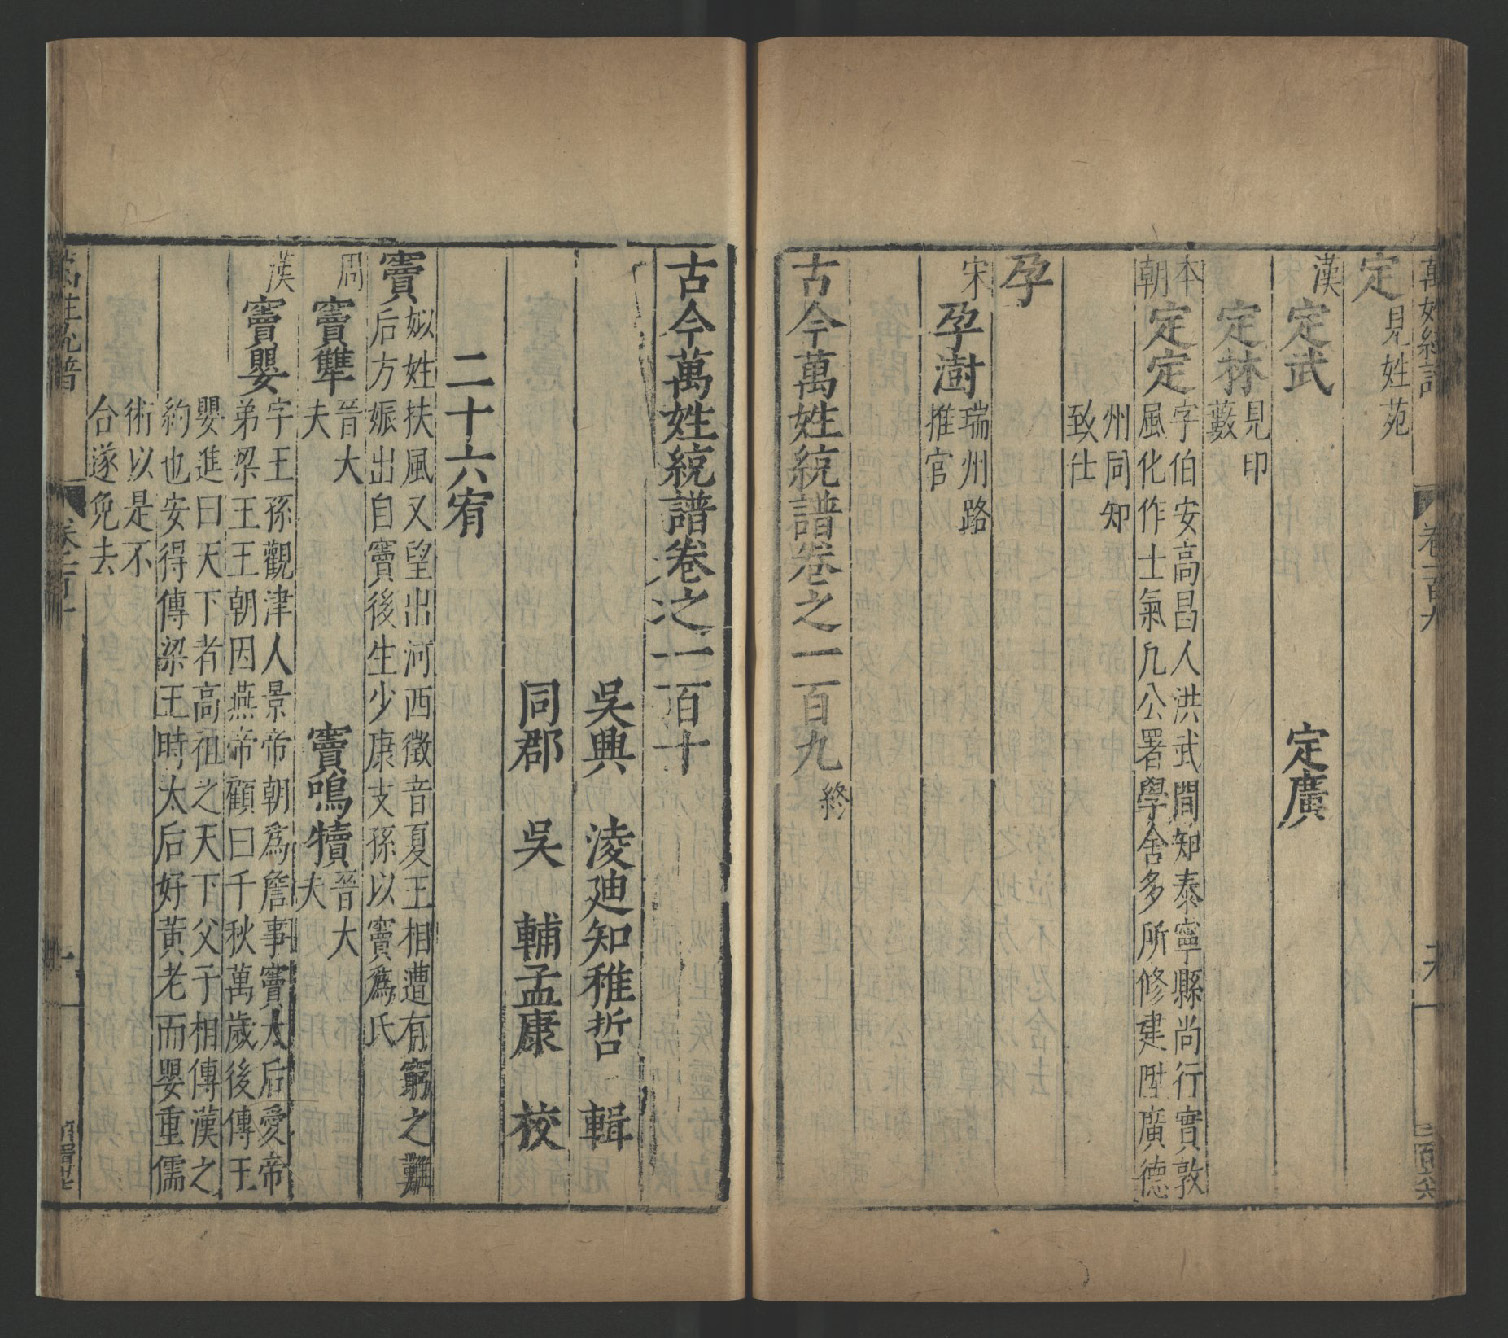 萬姓統譜
卷一百九
定
見姓苑
漢
定武
定廣
定林
見印
藪
本
朝
定定
字伯安高昌人洪武間知泰寧縣尚行實敦
風化作士氣凡公署學舍多所修建陞廣德
州同知
致仕
孕
宋
孕澍
瑞州路
推官
古今萬姓統譜卷之一百九
終
古今萬姓統譜卷之一百十
吳興 淩廸知稚哲 輯
同郡 吳 輔孟康 校
二十六宥
竇
姒姓扶風又望出河西徵音夏王相遭有窮之難
后方娠出自竇後生少康支孫以竇爲氏
周
竇犨
晉大
夫
竇鳴犢
晉大
夫
漢
竇嬰
字王孫觀津人景帝朝爲詹事竇太后愛帝
弟梁王王朝因燕帝顧曰千秋萬歲後傳王
嬰進曰天下者高祖之天下父子相傳漢之
約也安得傳梁王時太后好黃老而嬰重儒
術以是不
合遂免去
萬姓統譜
卷一百十
一